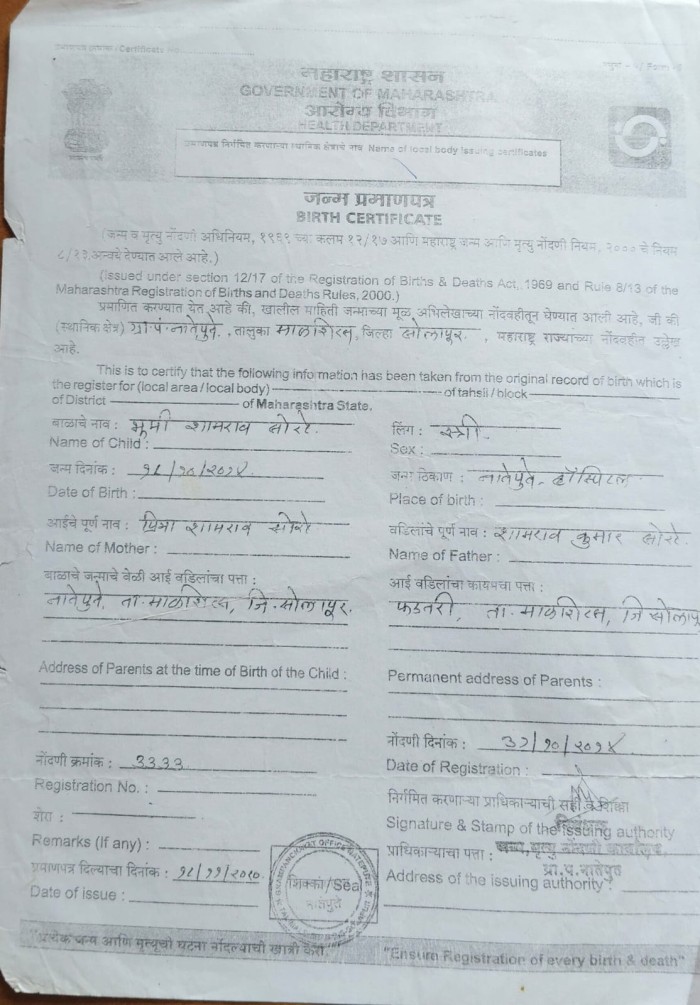 प्रमाणपत्र क्रमांक / Certificate No.
महाराष्ट्र शासन
GOVERNMENT OF MAHARASHTRA
आरोग्य विभाग
HEALTH DEPARTMENT
प्रमाणपत्र निर्गमित करणाऱ्या स्थानिक क्षेत्राचे नाव Name of local body issuing certificates
जन्म प्रमाणपत्र
BIRTH CERTIFICATE
(जन्म व मृत्यु नोंदणी अधिनियम, १९६९ च्या कलम १२/१७ आणि महाराष्ट्र जन्म आणि मृत्यु नोंदणी नियम, २००० चे नियम
८/१३ अन्वये देण्यात आले आहे.)
(Issued under section 12/17 of the Registration of Births & Deaths Act, 1969 and Rule 8/13 of the
Maharashtra Registration of Births and Deaths Rules, 2000.)
प्रमाणित करण्यात येत आहे की, खालील माहिती जन्माच्या मूळ अभिलेखाच्या नोंदवहीतून घेण्यात आली आहे, जी की
(स्थानिक क्षेत्र) ग्रा.पं.नातेपुते, तालुका माळशिरस, जिल्हा सोलापूर, महाराष्ट्र राज्याच्या नोंदवहीत उल्लेख
आहे.
This is to certify that the following information has been taken from the original record of birth which is
the register for (local area / local body) of tahsil / block
of District of Maharashtra State.
बाळाचे नाव : शामराव लिंग : स्त्री.
Name of Child : Sex :
जन्म दिनांक : जन्म ठिकाण : नातेपुते- हॉस्पिटल
Date of Birth : Place of birth :
आईचे पूर्ण नाव : प्रिया शामराव वडिलांचे पूर्ण नाव : शामराव कुमार
Name of Mother : Name of Father :
बाळाचे जन्माचे वेळी आई वडिलांचा पत्ता : आई वडिलांचा कायमचा पत्ता :
नातेपुते, ता. माळशिरस, जि. सोलापूर. फडतरी, ता. माळशिरस, जि सोलापू
Address of Parents at the time of Birth of the Child : Permanent address of Parents :
नोंदणी क्रमांक : ३३३३ नोंदणी दिनांक :
Registration No. : Date of Registration :
शेरा : निर्गमित करणाऱ्या प्राधिकाऱ्याची सही व शिक्का
Remarks (If any) : Signature & Stamp of the issuing authority
प्रमाणपत्र दिल्याचा दिनांक : प्राधिकाऱ्याचा पत्ता : जन्म, मृत्यु नोंदणी कार्यालय,
ग्रा.पं.नातेपुते
Date of issue : Address of the issuing authority :
शिक्का / Seal
नातेपुते
"प्रत्येक जन्म आणि मृत्यूची घटना नोंदल्याची खात्री करा. "Ensure Registration of every birth & death"